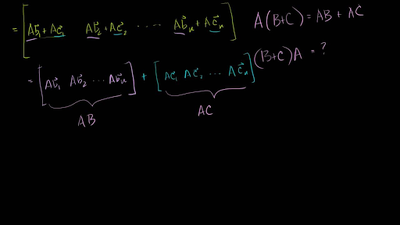 = [Ab⃗₁+Ac⃗₁ Ab⃗₂+Ac⃗₂ ..... Ab⃗ₙ+Ac⃗ₙ] A(B+C)=AB+AC
= [Ab⃗₁ Ab⃗₂ ... Ab⃗ₙ] + [Ac⃗₁ Ac⃗₂ ... Ac⃗ₙ] (B+C)A = ?
AB AC